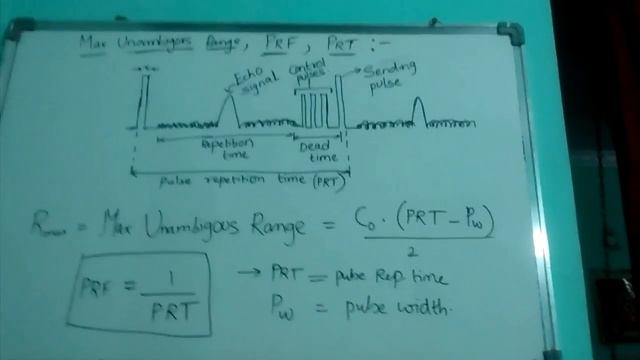 Max Unambigous Range, PRF, PRT :-
Echo signal
Control pulses
Sending pulse
Repetition time
Dead time
pulse repetition time (PRT)
Rmax = Max Unambigous Range = C₀ · (PRT - Pw) / 2
PRF = 1 / PRT
→ PRT = pulse Rep time
Pw = pulse width.